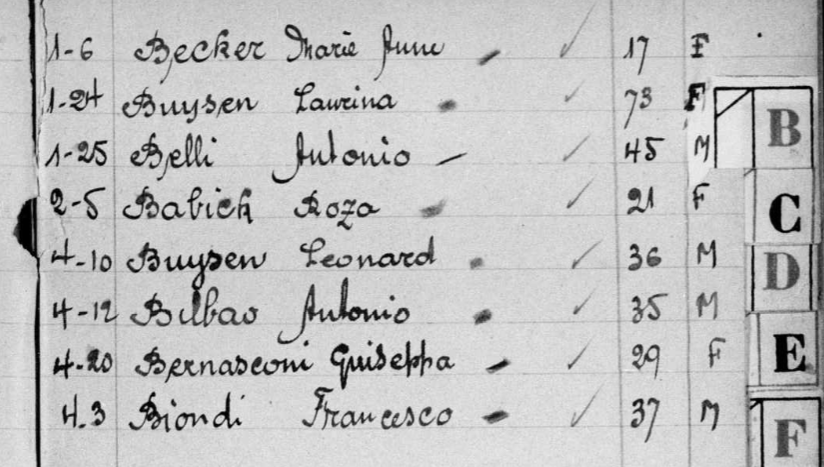 1-6 Becker Marie Anne 17 F
1-24 Buysen Laurina 73 F
1-25 Belli Antonio 45 M
2-5 Babich Roza 21 F
4-10 Buysen Leonard 36 M
4-12 Bilbao Antonio 35 M
4-20 Bernasconi Guiseppa 29 F
4.3 Biondi Francesco 37 M
B
C
D
E
F